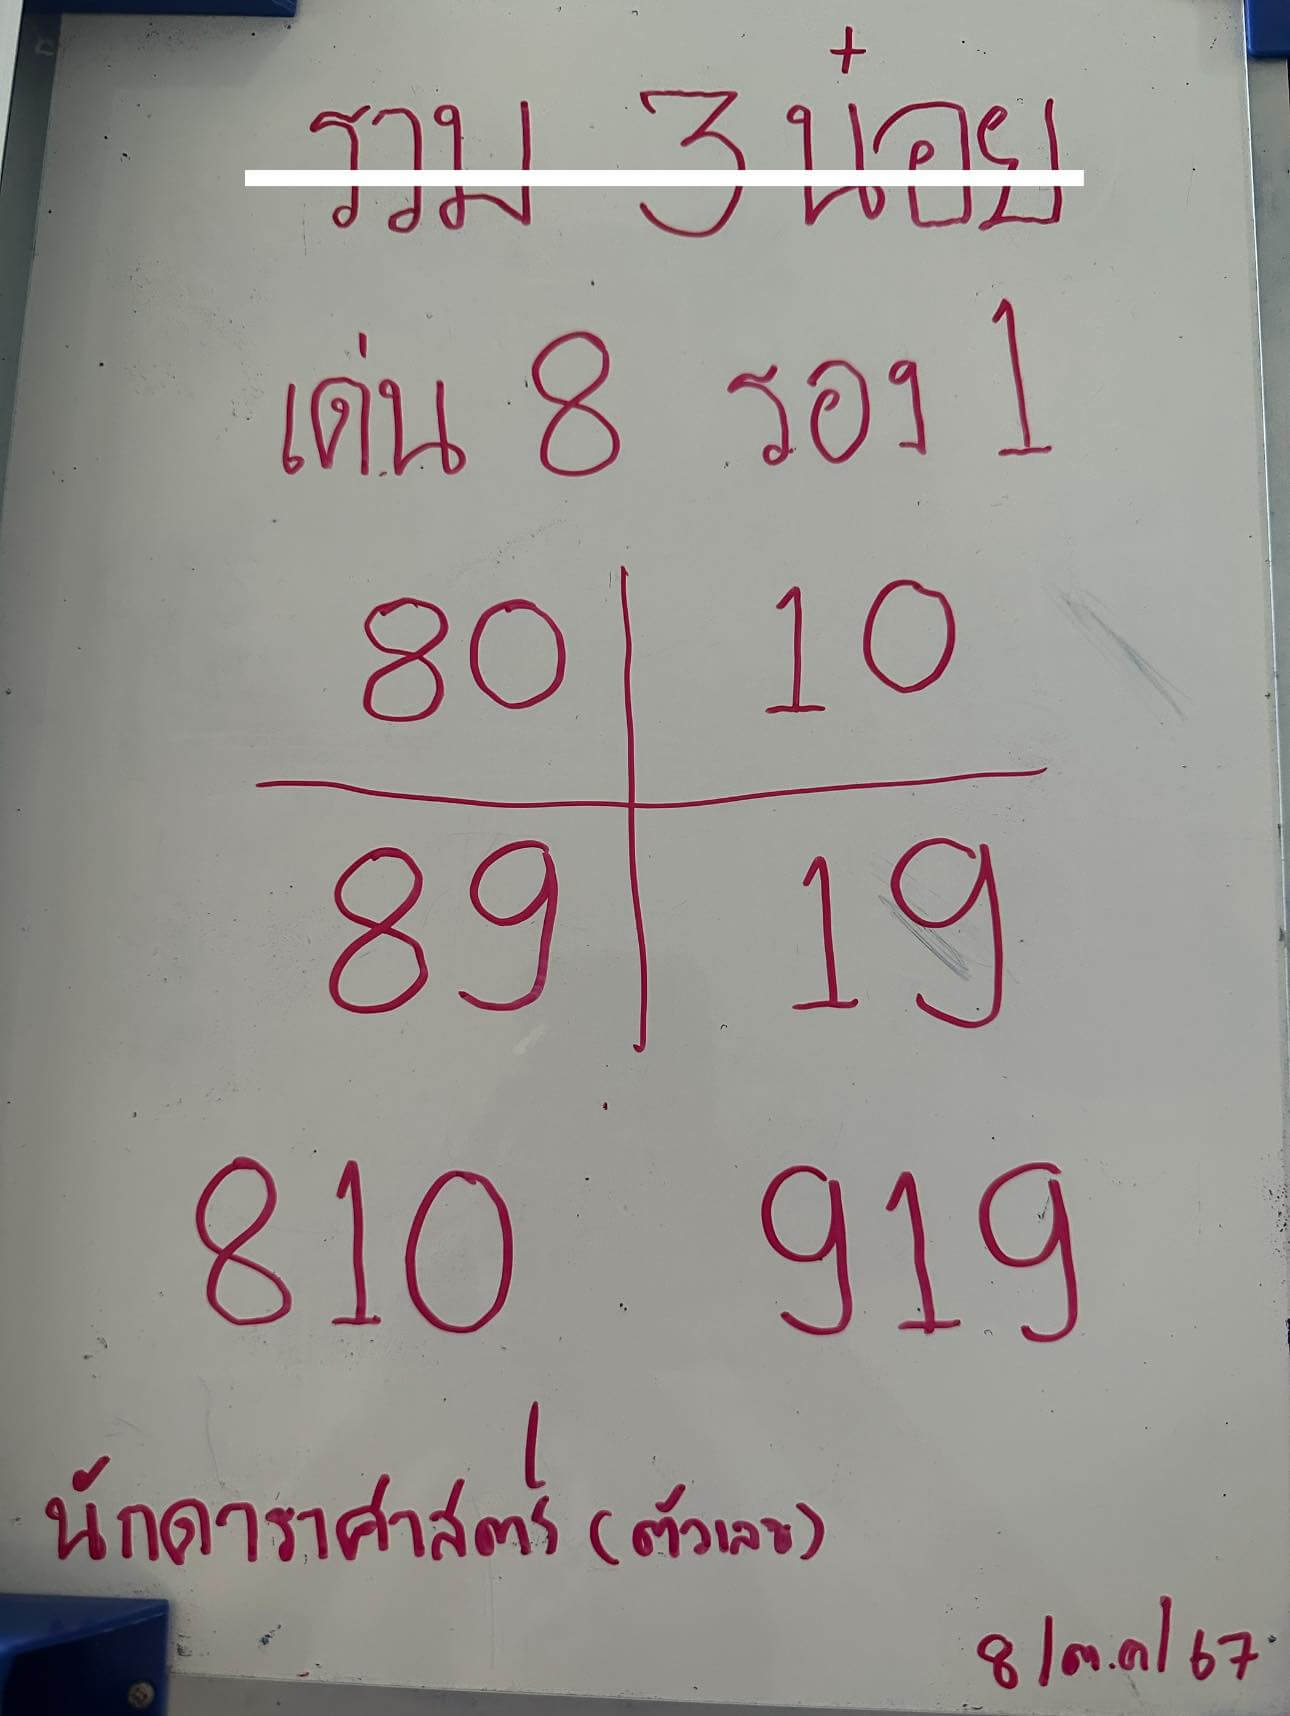 รวม 3 น๋อย
เด่น 8 รอง 1
80 10
89 19
810 919
นักดาราศาสตร์ (ตัวเลข)
8/ต.ค/67